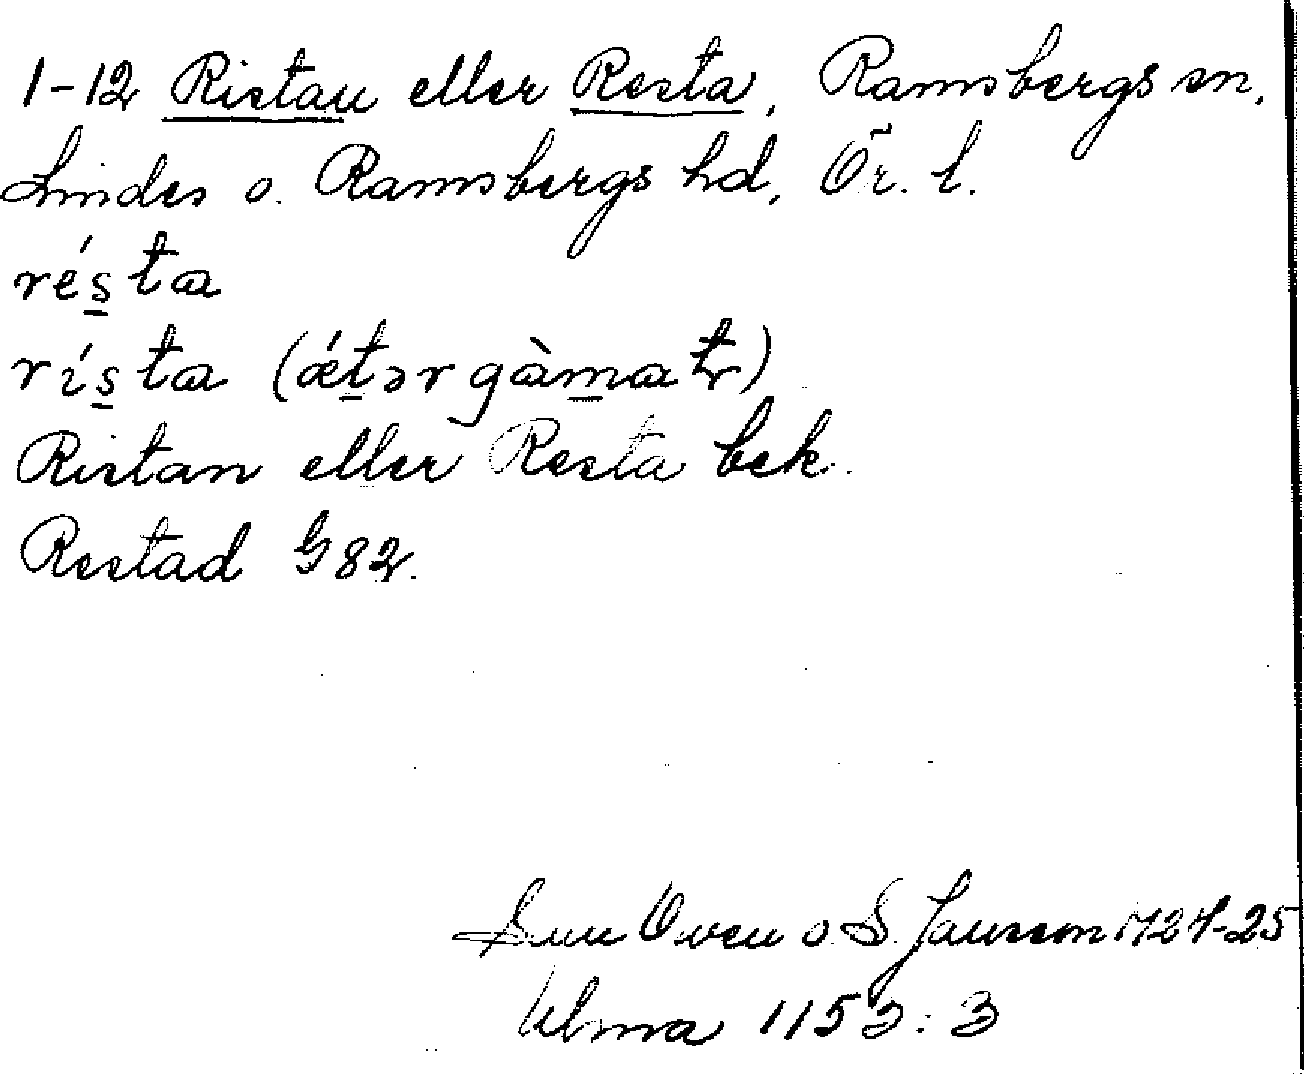 1-12 Ristan eller Resta, Ramsbergs sn,
Lindes o. Ramsbergs hd, Ör. l.
rés̱ta
rís̱ta (ǽṯərgàm̱at)
Ristan eller Resta bek.
Restad G82.
Sven Oven o. S. Jansson 1924-25
Ulma 1153:3